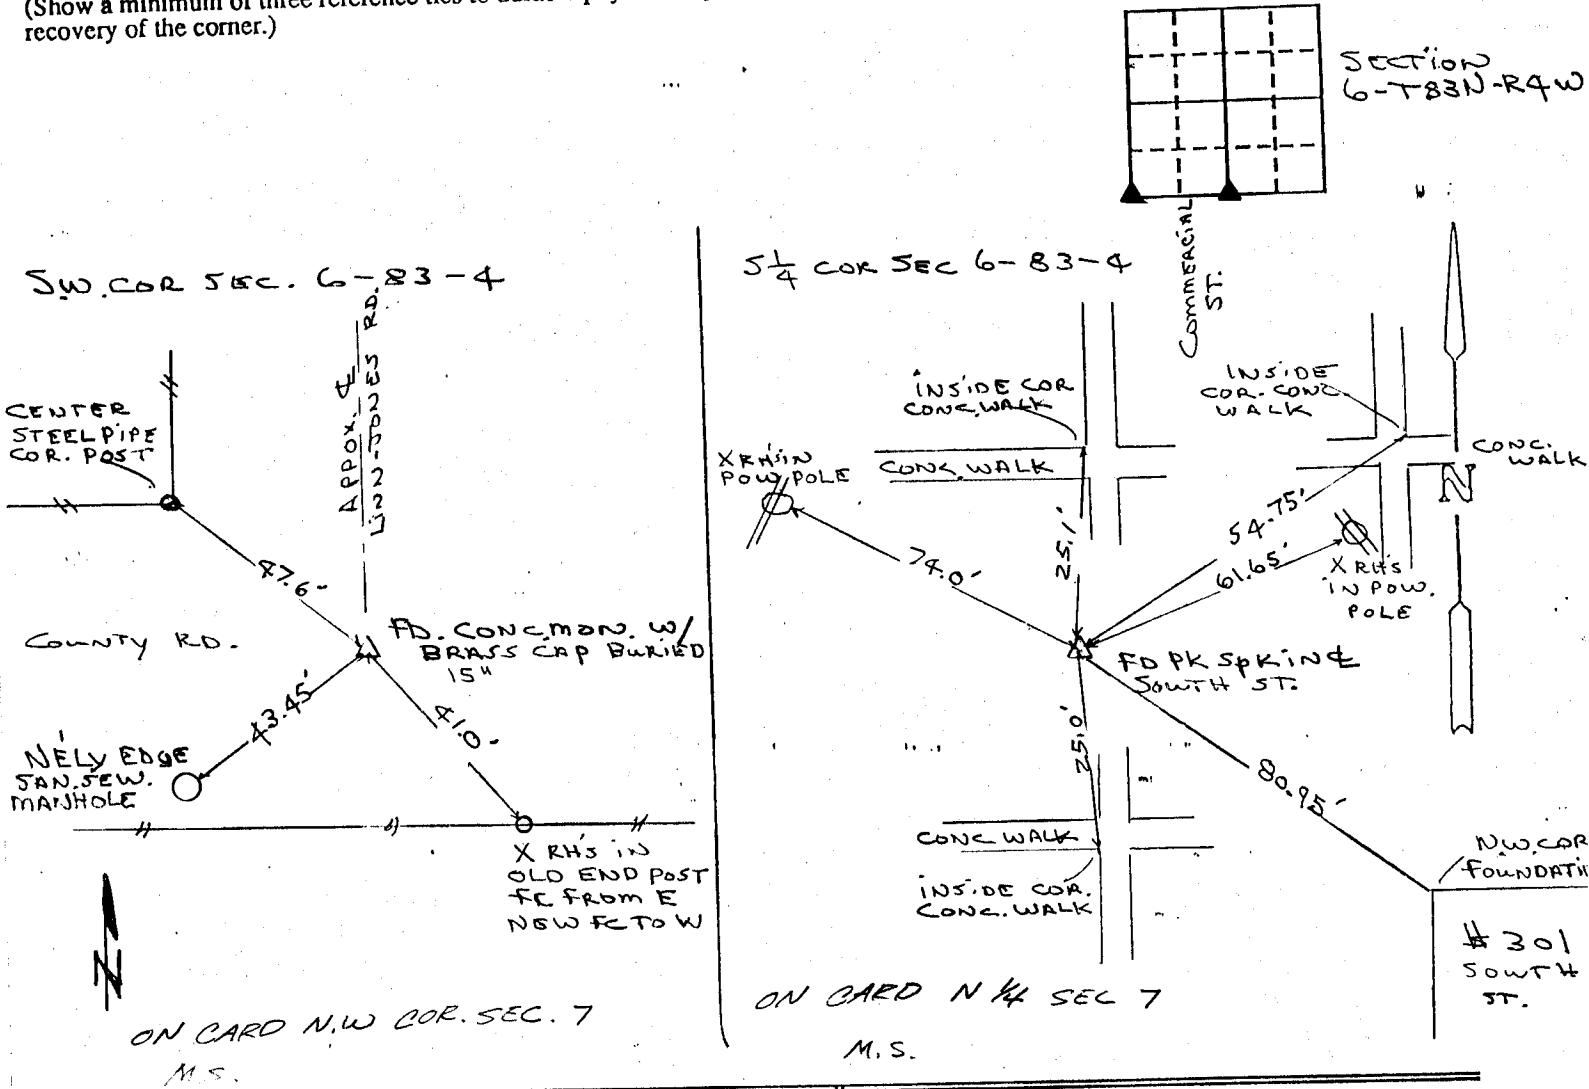 (Show a minimum of three reference ties to
recovery of the corner.)
SECTION
6-T83N-R4W
COMMERCIAL
ST.
S.W. COR SEC. 6-83-4
APPOX. ℄
LINN-JONES RD.
CENTER
STEEL PIPE
COR. POST
47.6'
COUNTY RD.
FD. CONC. MON. W/
BRASS CAP BURIED
15"
43.45'
41.0'
NELY EDGE
SAN. SEW.
MANHOLE
X RH'S IN
OLD END POST
FC FROM E
NEW FC TO W
N
ON CARD N.W COR. SEC. 7
M.S.
S 1/4 COR SEC 6-83-4
INSIDE COR
CONC. WALK
INSIDE
COR. CONC.
WALK
X RH'S IN
POW POLE
CONC. WALK
CONC.
WALK
N
25.1'
54.75'
61.65'
74.0'
X RH'S
IN POW.
POLE
FD PK SPK IN ℄
SOUTH ST.
25.0'
80.95'
CONC WALK
INSIDE COR.
CONC. WALK
N.W. COR
# 301
SOUTH
ST.
ON CARD N 1/4 SEC 7
M.S.